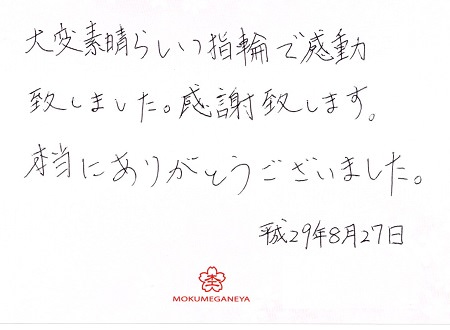 大変素晴らしい指輪で感動
致しました。感謝致します。
本当にありがとうございました。
平成29年8月27日
MOKUMEGANEYA